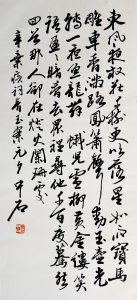 東風夜放花千樹更吹落星如雨寶馬
雕車香滿路鳳簫聲動玉壺光
轉一夜魚龍舞蛾兒雪柳黃金縷笑
語盈盈暗香去眾裏尋他千百度驀然
回首那人却在燈火闌珊處
辛棄疾詞青玉案元夕 中石